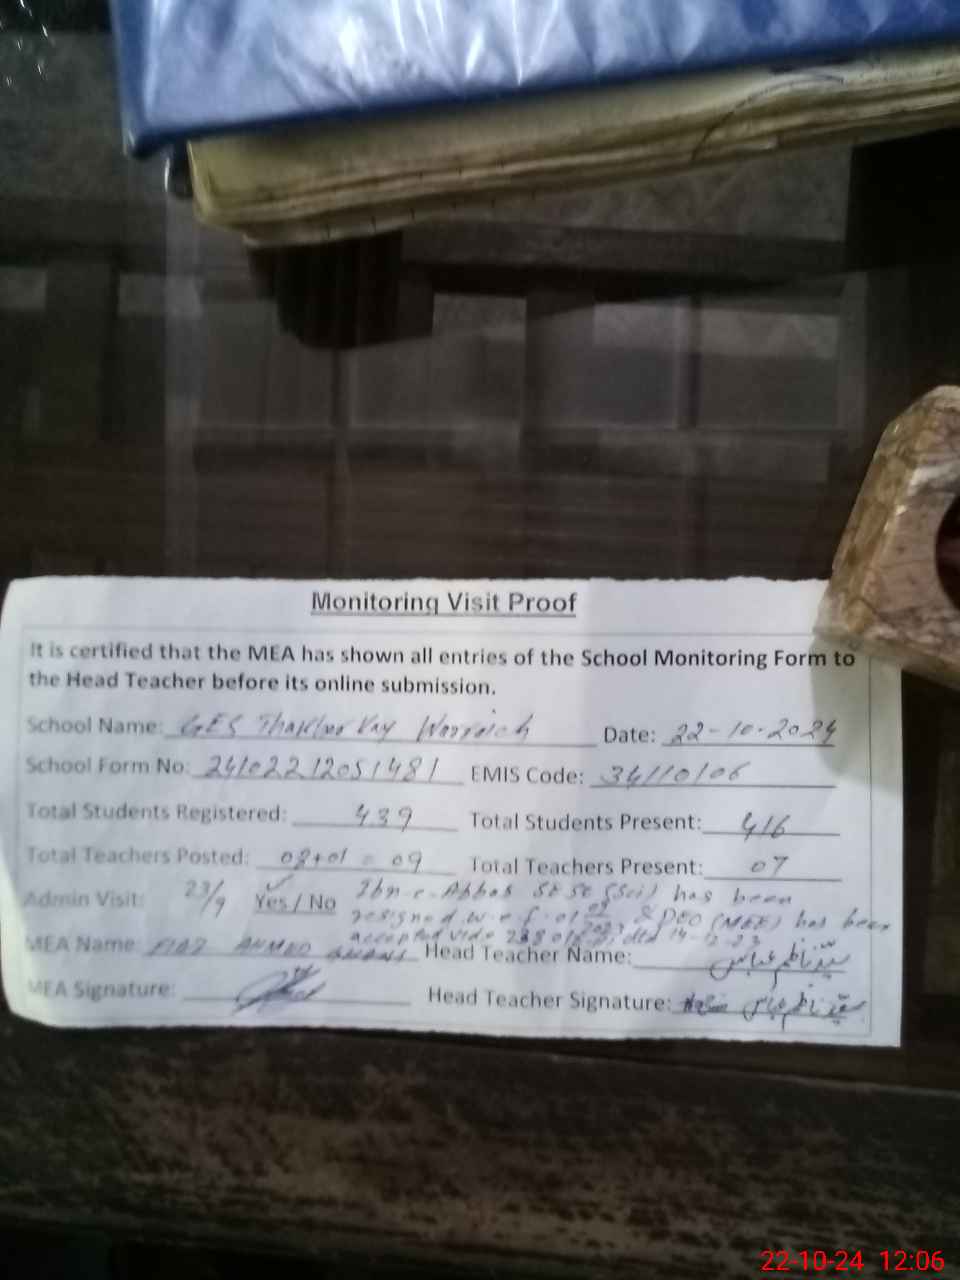 Monitoring Visit Proof
It is certified that the MEA has shown all entries of the School Monitoring Form to
the Head Teacher before its online submission.
School Name: GES Warraich Date: 22-10-2024
School Form No: 24102212051481 EMIS Code: 34110106
Total Students Registered: 439 Total Students Present: 416
Total Teachers Posted: 08+01 = 09 Total Teachers Present: 07
Admin Visit: 23/9 Yes / No Ibn-e-Abbas SESE (Sci) has been
resigned w.e.f. & DEO (MEE) has been
accepted vide
MEA Name: AHMED Head Teacher Name:
MEA Signature: Head Teacher Signature:
22-10-24 12:06